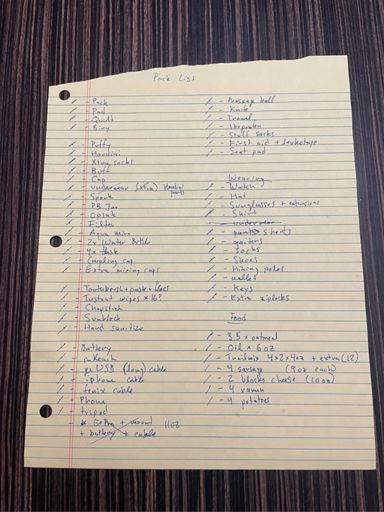 Pack List
/ - Pack
/ - Pad
/ - Quilt
/ - Bivy
/ - Puffy
/ - Houdini
/ - Xtra socks
/ - Buff
/ - Cap
/ - underwear (xtra) Houdini pants
/ - Spork
/ - PB Jar
/ - Opsak
/ - Filter
/ - Aqua mira
/ - 2x Water Bottle
/ - 4x
/ - Coupling cap
/ - Extra mixing caps
/ - Toothbrush + paste + floss
/ - Instant wipes x 16?
/ - Chapstick
/ - Sunblock
/ - Hand sanitizer
/ - Battery
/ - inReach
/ - μUSB (long) cable
/ - iphone cable
/ - fenix cable
/ - Phone
/ - tripod
* GoPro + mount 11oz
+ battery + cable
/ - Massage ball
/ - Knife
/ - Trowel
/ - Ibuprofen
/ - Stuff sacks
/ - First aid + leukotape
/ - Seat pad
Wearing
/ - Watch
/ - Hat
/ - Sunglasses + extensions
/ - Shirt
/ - underwear
/ - pants shorts
/ - gaiters
/ - Socks
/ - Shoes
/ - Hiking poles
/ - wallet
/ - Keys
/ - Extra ziplocks
Food
/ - 3.5 x oatmeal
/ - Oil x 6 oz
/ - Trailmix 4x2x4oz + extra (12)
/ - 4 sausage (9oz each)
/ - 2 blocks cheese (10oz)
/ - 4 ramen
/ - 4 potatoes